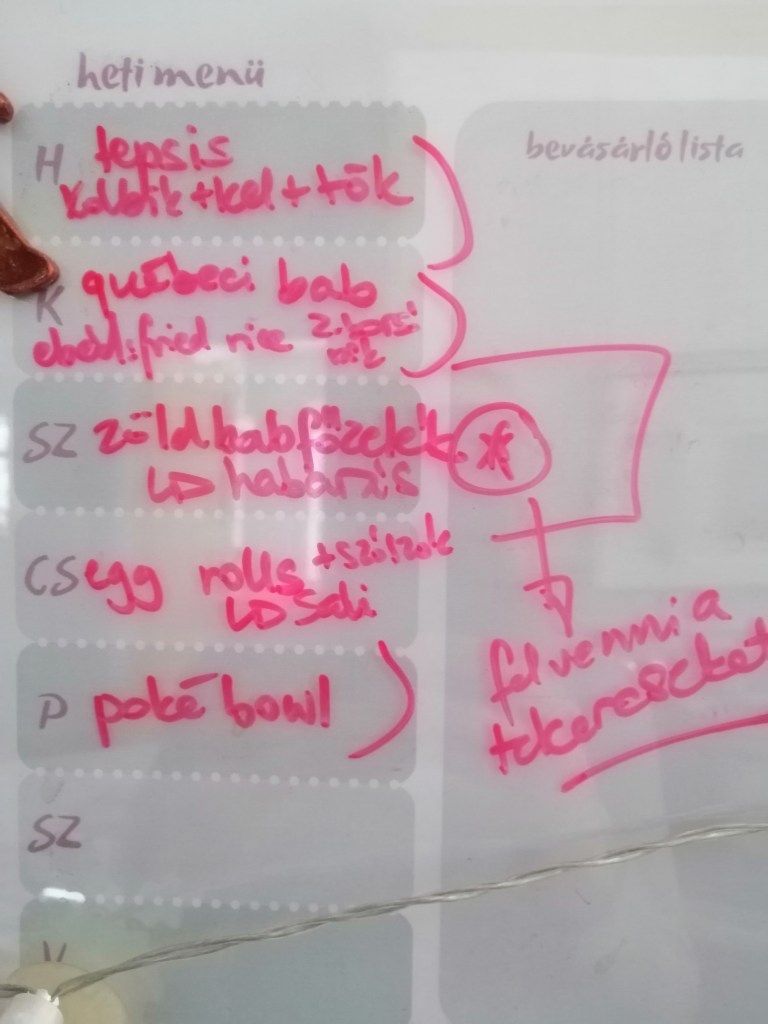 heti menü
bevásárló lista
H tepsis
kolbik+kel+tök
K québeci bab
ebéd: fried rice
SZ zöldbabfőzelék *
habarás
CS egg rolls +szószok
sali
P poké bowl
felvenni a
tekercseket
SZ
V